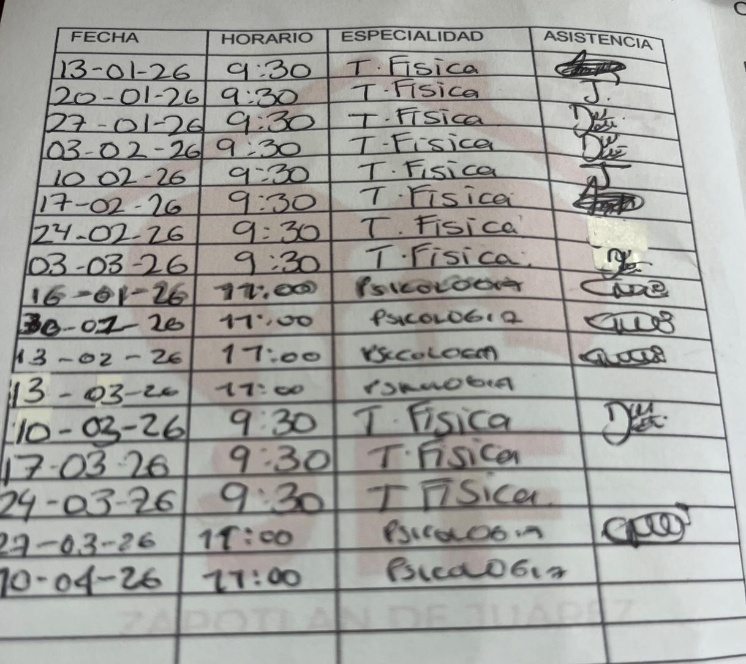 FECHA HORARIO ESPECIALIDAD ASISTENCIA
13-01-26 9:30 T. Física
20-01-26 9:30 T. Física J.
27-01-26 9:30 T. Física
03-02-26 9:30 T. Física
10 02-26 9:30 T. Física J
17-02-26 9:30 T. Física
24-02-26 9:30 T. Física
03-03-26 9:30 T. Física.
16-01-26 11:00 PSICOLOGIA
30-01-26 11:00 PSICOLOGIA
13-02-26 11:00 PSICOLOGIA
13-03-26 11:00 PSICOLOGIA
10-03-26 9:30 T. Física
17-03-26 9:30 T. Física
24-03-26 9:30 T Física.
27-03-26 11:00 PSICOLOGIA
10-04-26 11:00 PSICOLOGIA
ZAPOTLAN DE JUAREZ